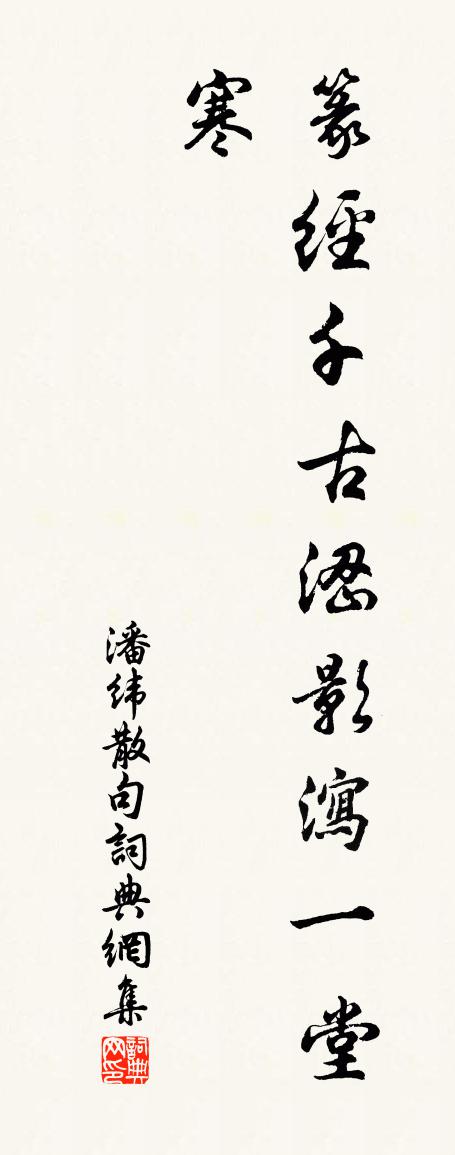 篆經千古澀影瀉一堂
寒
潘緯散句詞典網集
詞典
网印